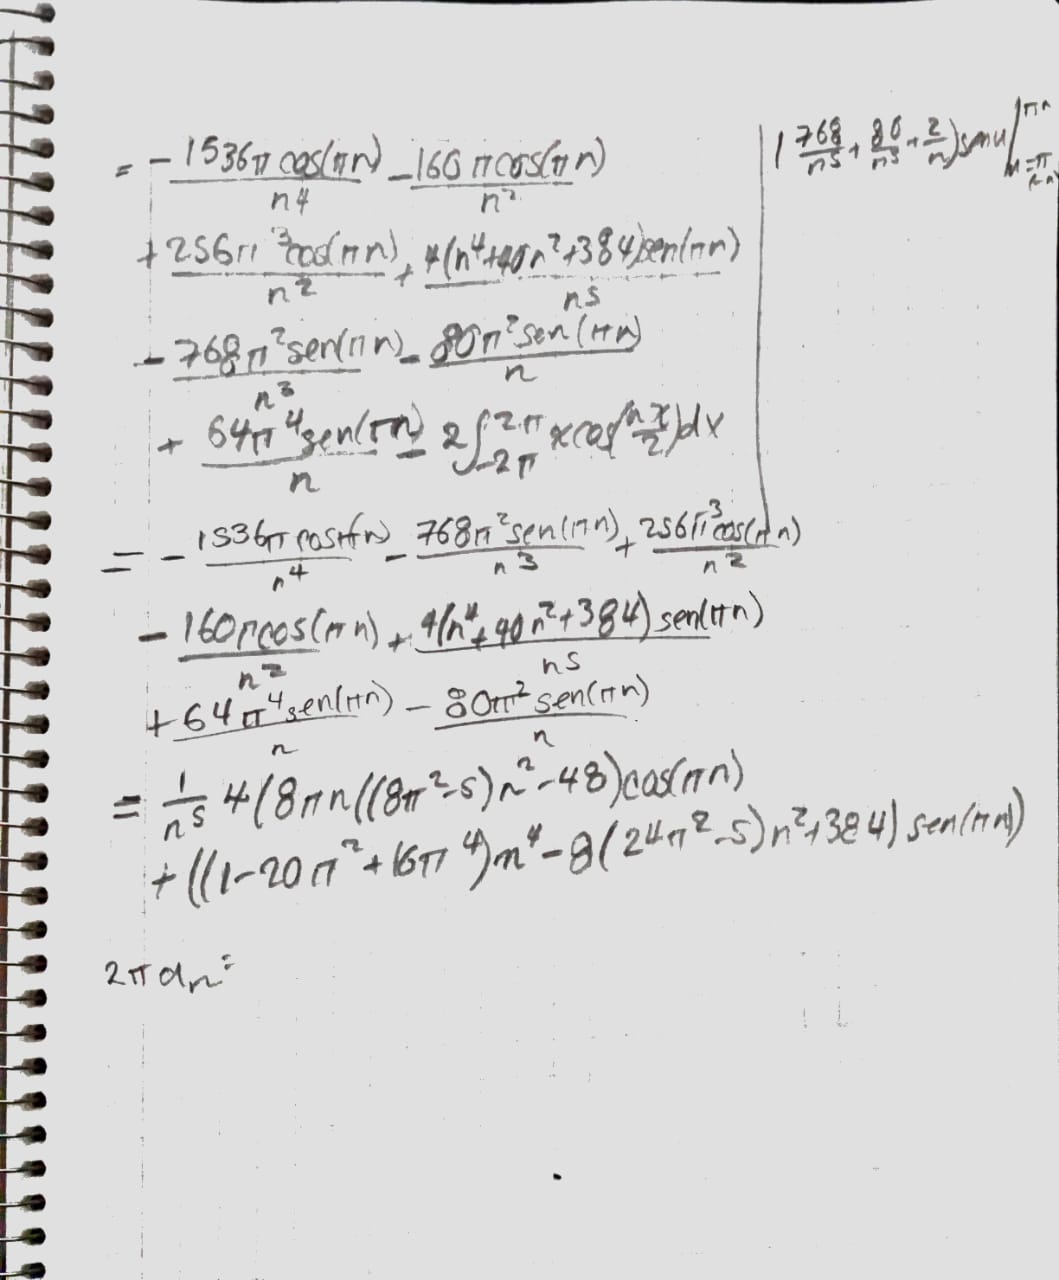 = - 1536π cos(πn)/n4 - 160 πcos(πn)/n² | ( 768/n5 + 80/n3 + 2/n) senu |
+ 256π³cos(πn)/n² + 4(n⁴+40n²+384)sen(πn)/n5
- 768π²sen(πn)/n³ - 80π²sen(πn)/n
+ 64π⁴sen(πn)/n - 2∫_{-2π}^{2π} xcos(nx/2)dx
= - 1536π cos(πn)/n⁴ - 768π²sen(πn)/n³ + 256π³cos(πn)/n²
- 160πcos(πn)/n² + 4(n⁴+40n²+384) sen(πn)/n5
+ 64π⁴sen(πn)/n - 80π² sen(πn)/n
= 1/n5 4(8πn((8π²-5)n²-48)cos(πn)
+ ((1-20π²+16π⁴)n⁴-8(24π²-5)n²+384) sen(πn))
2π an =